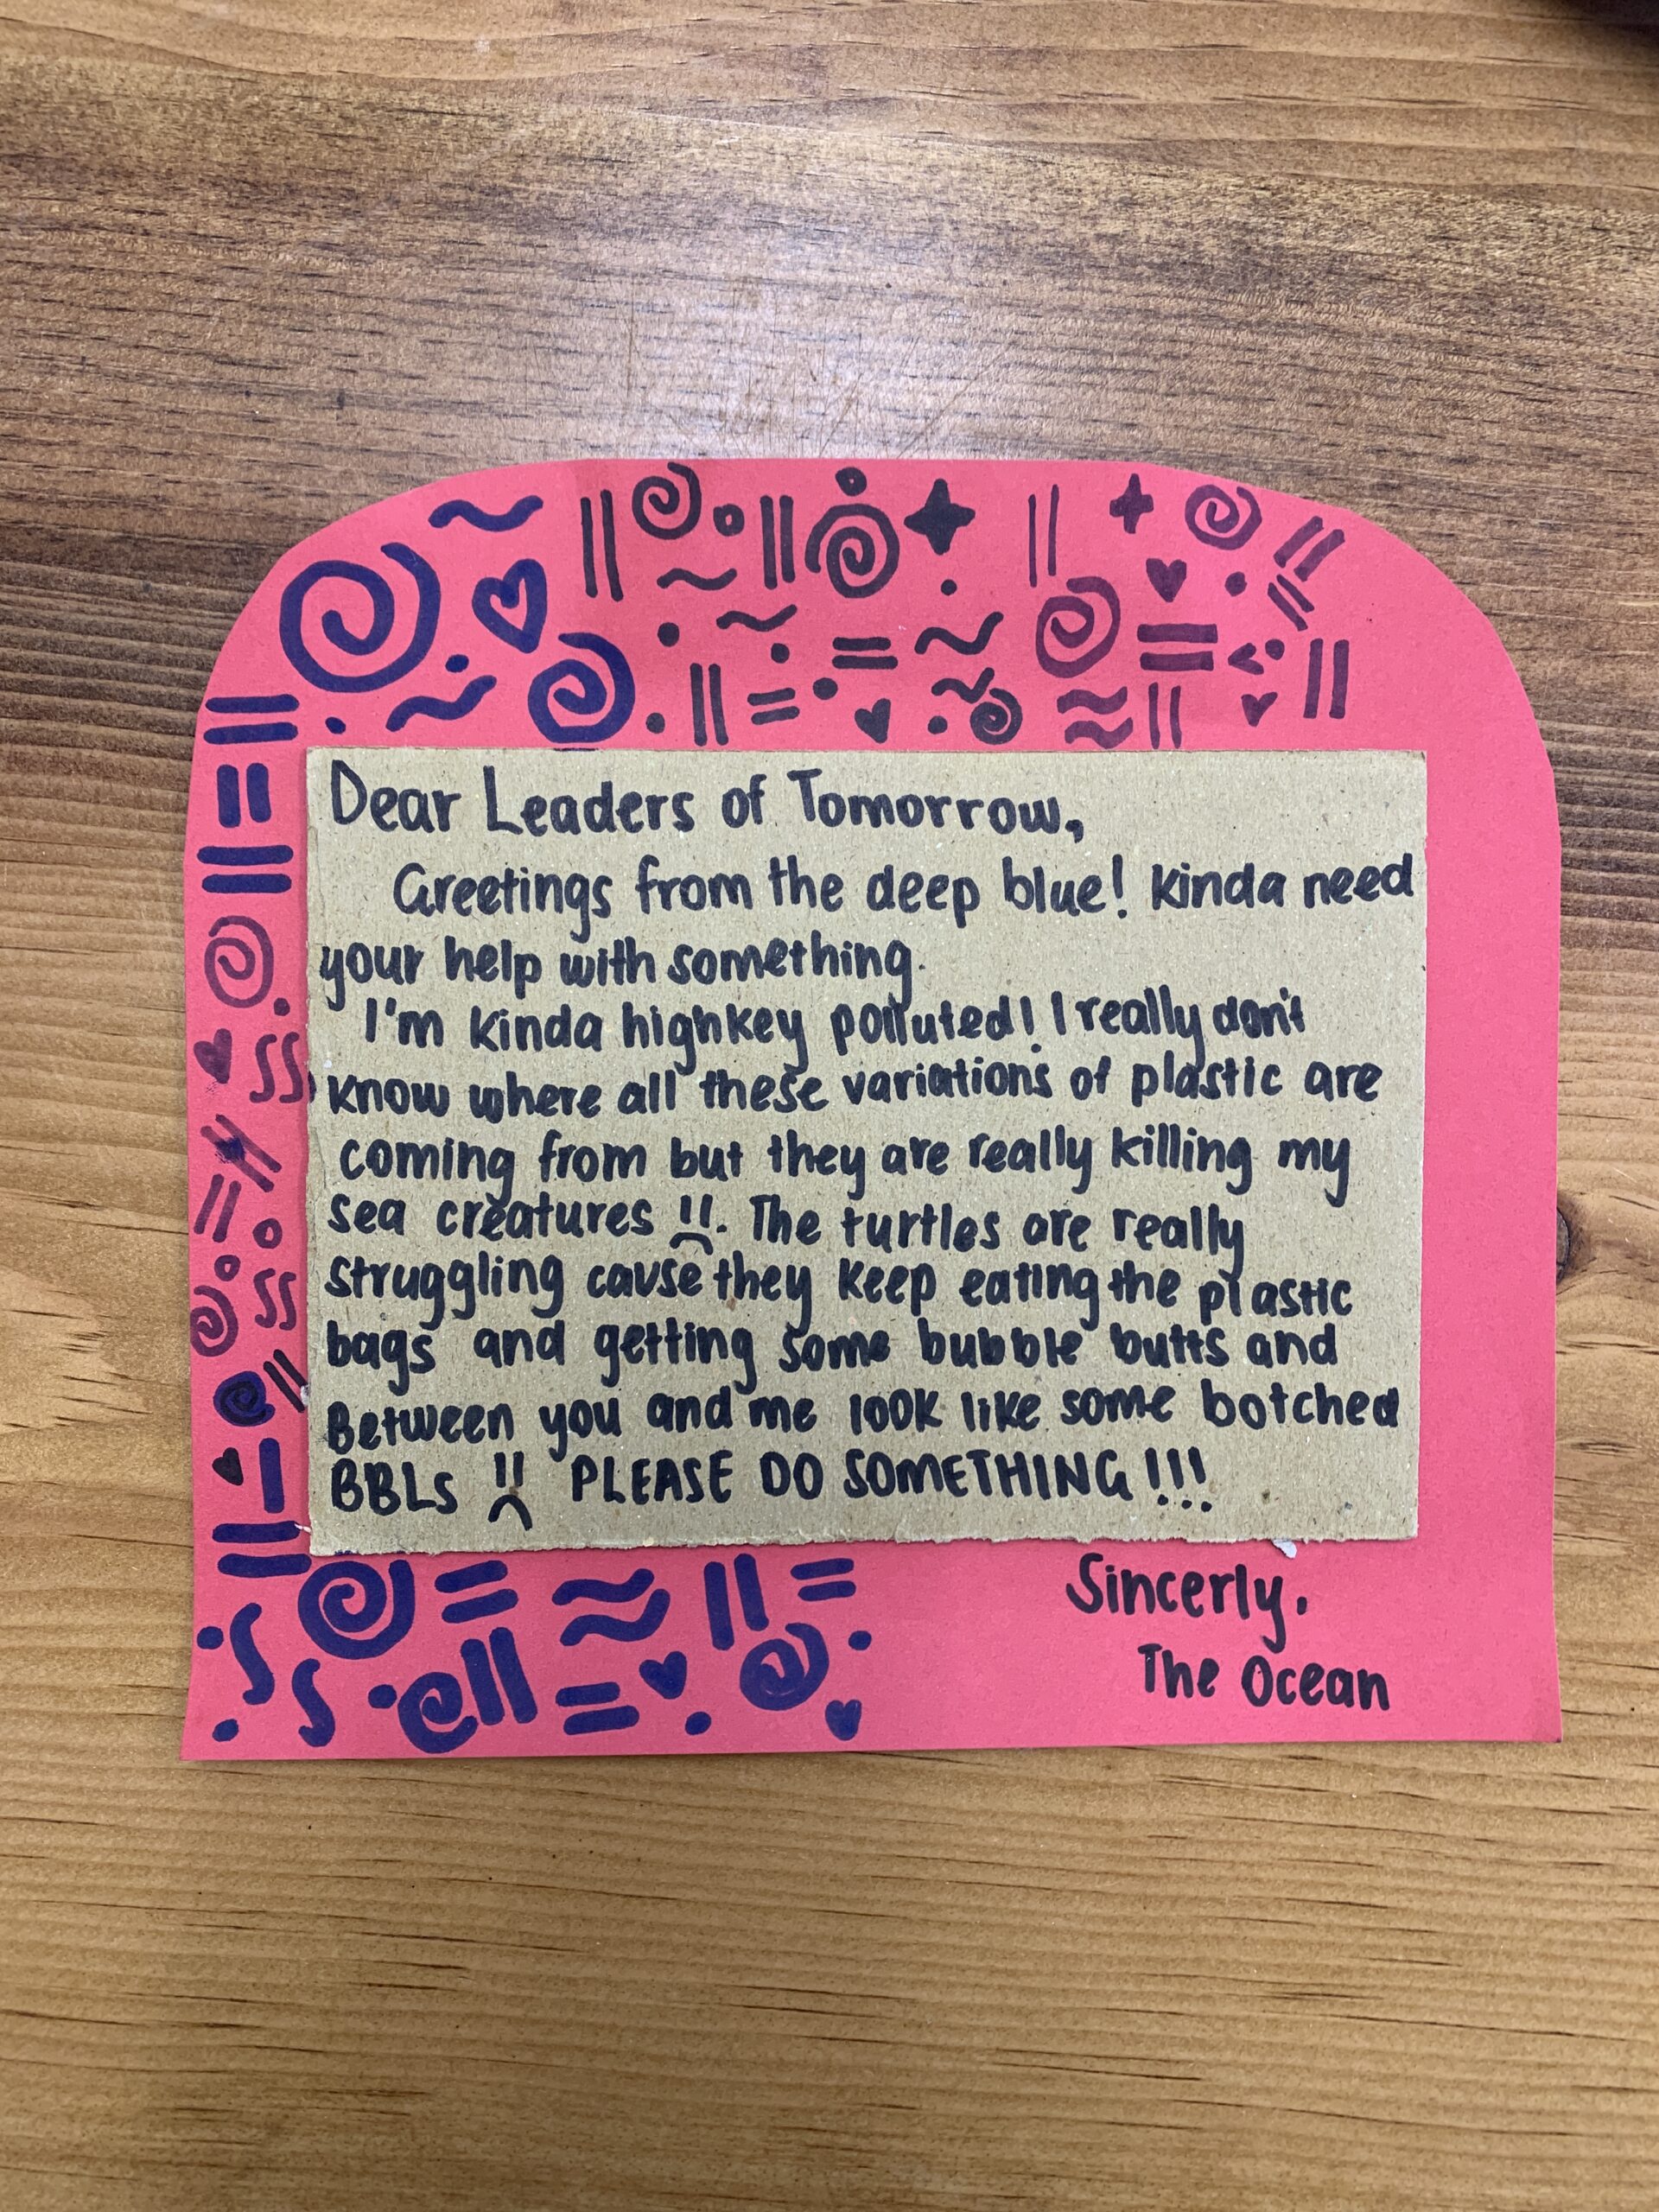 Dear Leaders of Tomorrow,
Greetings from the deep blue! Kinda need
your help with something.
I'm kinda highkey polluted! I really don't
know where all these variations of plastic are
coming from but they are really killing my
sea creatures !!. The turtles are really
struggling cause they keep eating the plastic
bags and getting some bubble butts and
Between you and me look like some botched
BBLs !! PLEASE DO SOMETHING!!!
Sincerly,
The Ocean